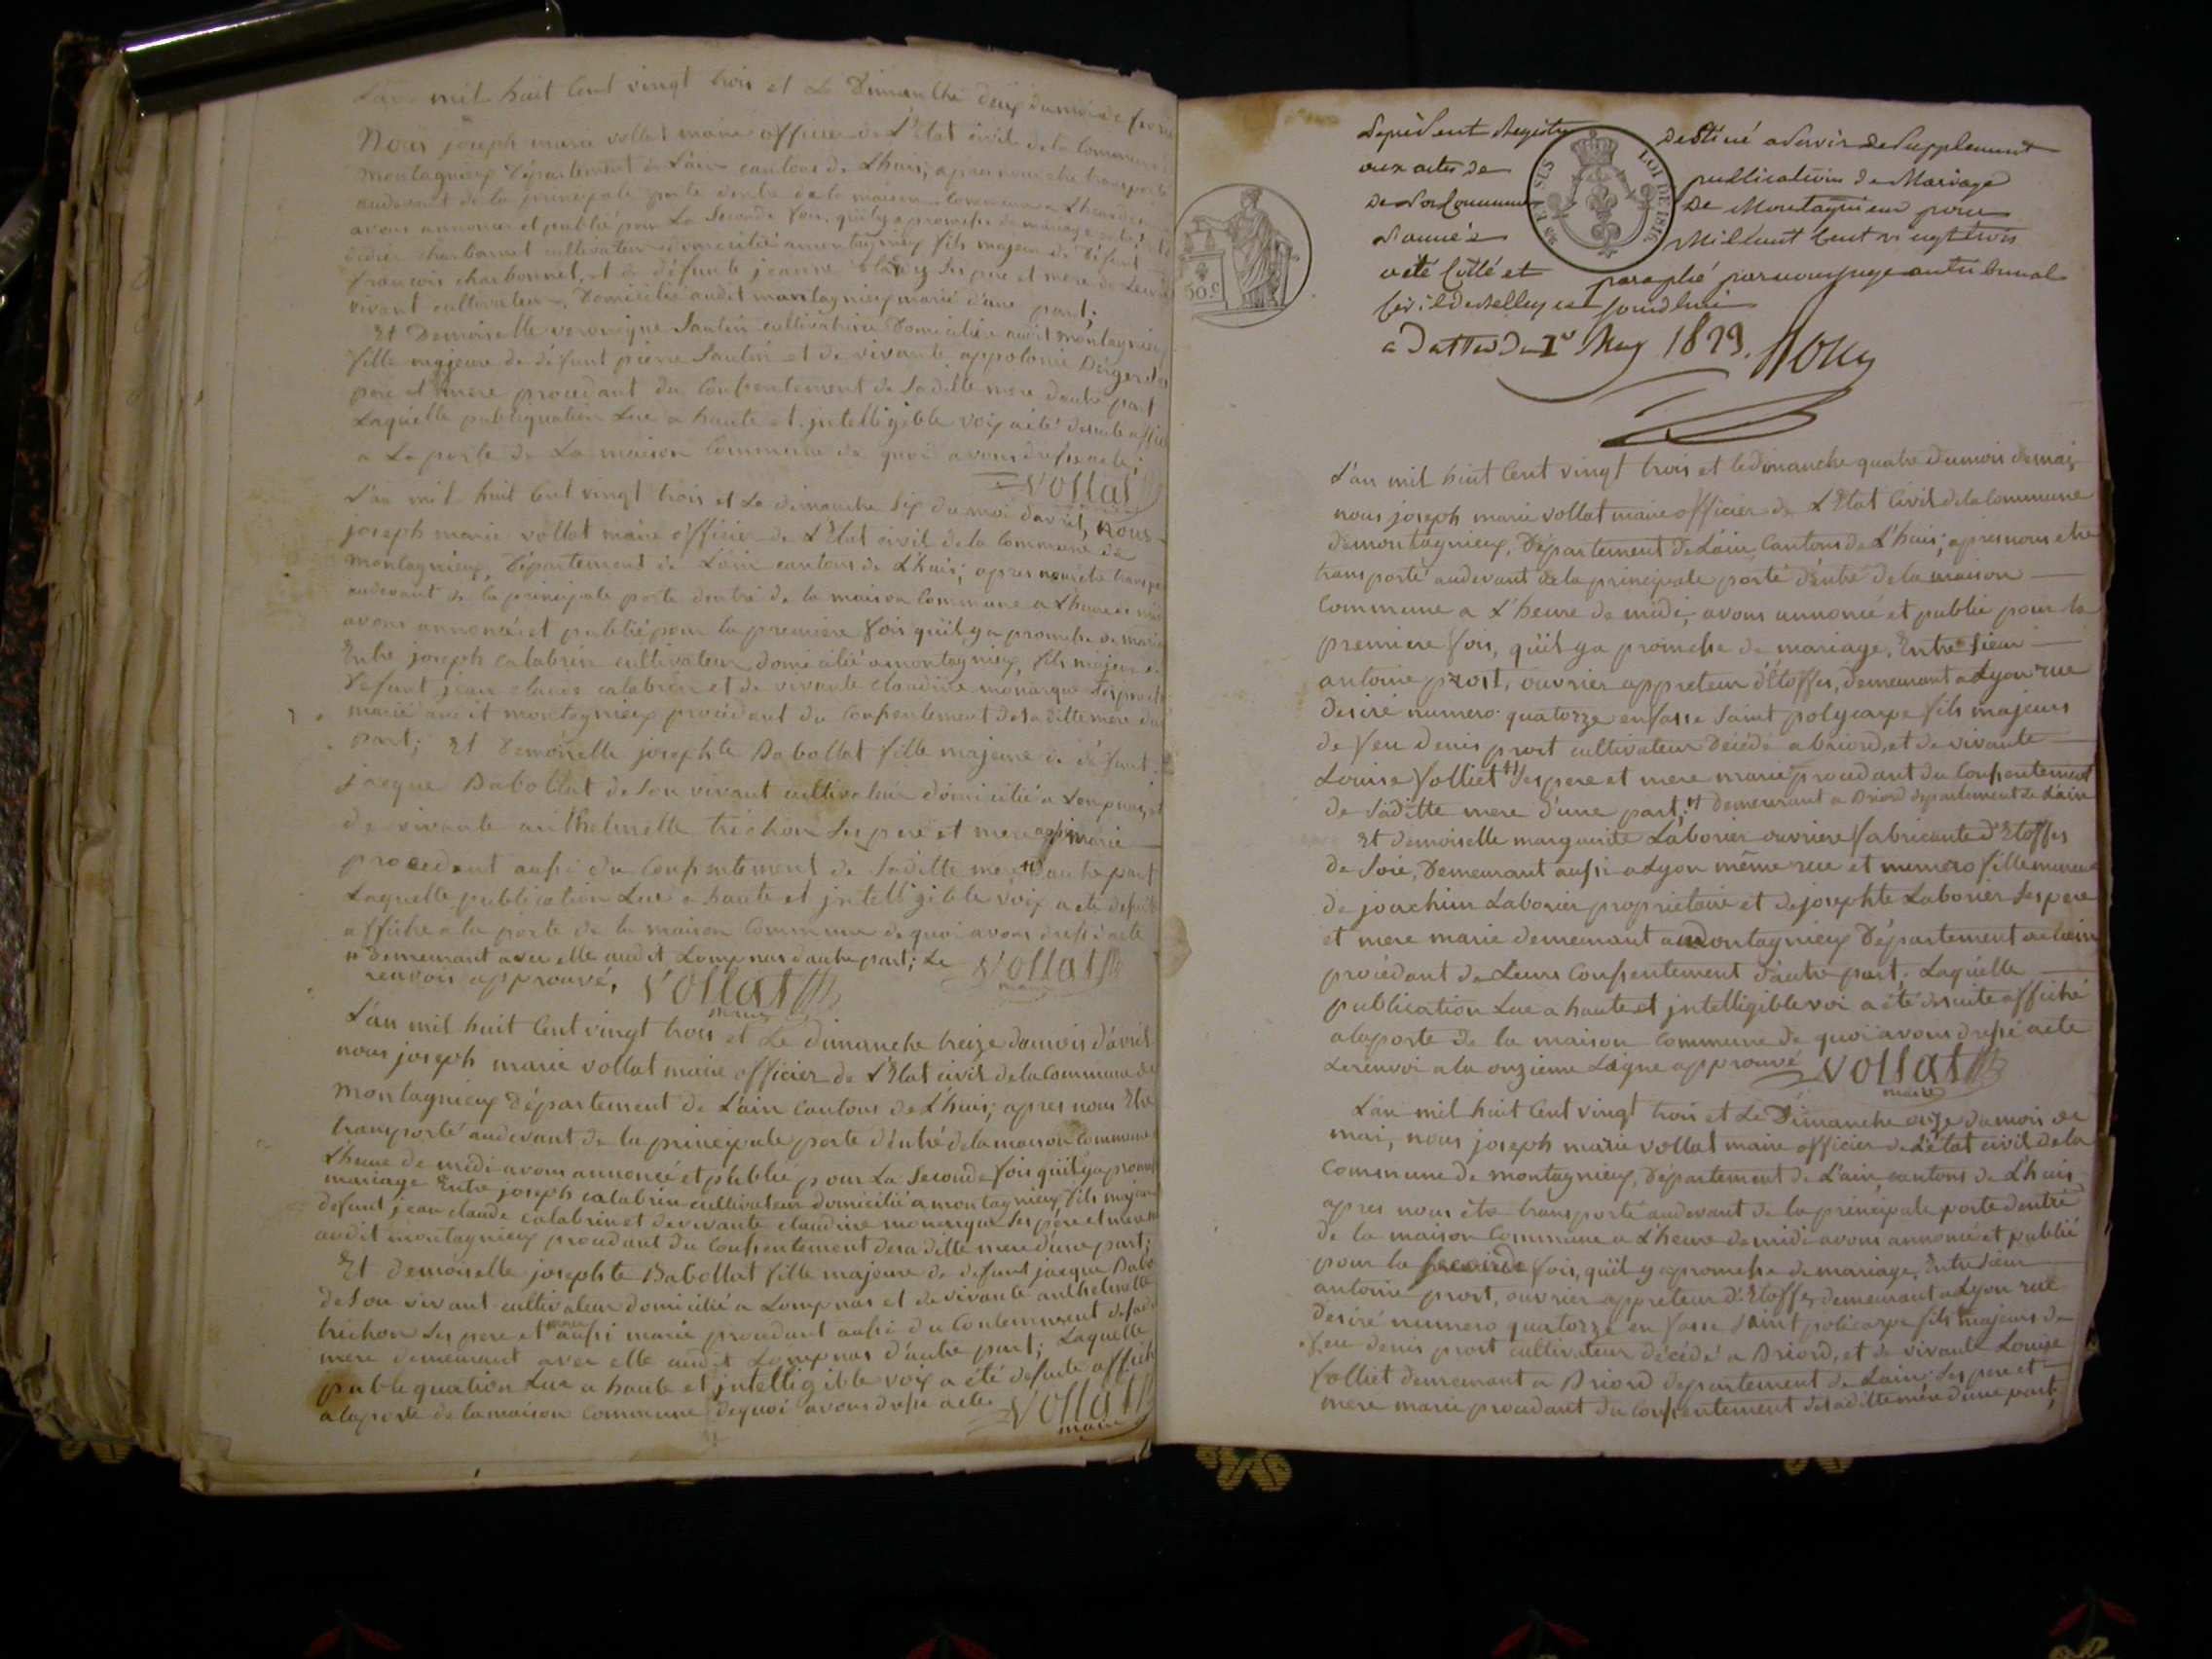 L'an mil huit Cent vingt trois et Le Dimanche deux du moi de
Nous joseph marie vollat maire officier de L'Etat civil de la Commune
montagnieux Département de L'ain cantons de Lhuis; apres nous etre transporté
audevant de la principale porte dentré de la maison Commune a Lheure de
avons annoncer et publié pour La Seconde fois, quil y a promesse de mariage
charbonnet cultivateur domicilié a montagnieux fils majeur de défunt
françois charbonnet, et de défunte jeanne ses pere et mere de Leur
vivant cultivateur, Domicilié audit montagnieux marié d'une part;
Et Demoiselle veronique Santin cultivatrice Domicilié audit montagnieux
fille majeure de défunt pierre Santin et de vivante appolonie
pere et mere procedant du Consentement de Saditte mere dautre part
Laquelle publiquation Lue a haute et jntelligible voix a été desuite
a La porte de La maison Commune de quoi avons dressé acte;
vollat
L'an mil huit Cent vingt trois et Le dimanche six du moi davril, nous
joseph marie vollat maire officier de L'Etat civil de la Commune de
montagnieux, Département de L'ain cantons de Lhuis; apres nous etre
audevant de la principale porte dentré de la maison Commune a Lheure de
avons annoncé et publié pour la premiere fois quil y a promesse de
Entre joseph calabrin cultivateur domicilié a montagnieux, fils majeur de
defunt jean claude calabrin et de vivante claudine monarque Ses pere
marié audit montagnieux procédant du Consentement de Saditte mere
part; Et Demoiselle josephte Babollat fille majeure de défunt
jacque Babollat de Son vivant cultivateur domicilié a Lompnas, et
de vivante anthelmette trichon Ses pere et mere aussi marié
procedant aussi du Consentement de Saditte mere " dautre part
Laquelle publication Lue a haute et jntelligible voix a été desuite
affiché a la porte de la maison Commune de quoi avons dressé acte
" demeurant avec elle audit Lompnas dautre part; Le vollat
renvois approuvé, vollat
maire
L'an mil huit Cent vingt trois et Le dimanche treize du mois d'avril
nous joseph marie vollat maire officier de L'Etat civil de la Commune de
montagnieux Département de L'ain Cantons de Lhuis; apres nous Etre
transporté audevant de la principale porte d'entré de la maison Commune
Lheure de midi avons annoncé et publié pour La Seconde fois quil y a
mariage Entre joseph calabrin cultivateur domicilié a montagnieux, fils
defunt jean claude calabrin et de vivante claudine monarque Ses pere et mere
audit montagnieux procedant du Consentement de sa ditte mere d'une part;
Et demoiselle josephte Babollat fille majeure de defunt jacque
de Son vivant cultivateur domicilié a Lompnas et de vivante anthelmette
trichon Ses pere et mere aussi marié procedant aussi du
mere demeurant avec elle audit Lompnas d'autre part; Laquelle
publequation Lue a haute et jntelligible voix a été desuite
a la porte de la maison Commune de quoi avons dressé acte. vollat
maire
Le présent Registre destiné a Servir de Supplement
aux actes de publication de Mariage
de la Commune De Montagnieu pour
L'année Mil huit Cent vingt trois
a été Cotté et paraphé par nous juge au tribunal
Civil de Belley ce jourd'hui
a Datter du 1er May 1823.
LOI DE 1816
50.c
L'an mil huit Cent vingt trois et le dimanche quatre du mois de mai
nous joseph marie vollat maire officier de L'Etat Civil de la Commune
de montagnieux, Département de L'ain, Cantons de L'huis; apres nous etre
transporté audevant de la principale porté d'entré de la maison
Commune a L'heure de midi, avons annoncé et publié pour la
premiere fois, qu'il y a promesse de mariage, Entre Sieur
antoine prost, ouvrier appreteur d'Etoffes, demeurant a Lyon rue
desiré numero quatorze en fasse Saint polycarpe fils majeurs
de feu denis prost cultivateur décédé a briord, et de vivante
Louise folliet " Ses pere et mere marié procedant du Consentement
de Saditte mere d'une part; " demeurant a Briord departement de L'ain
Et demoiselle marguerite Laborier ouvriere fabricante d'Etoffes
de Soie, Demeurant aussi a Lyon même rue et numero fille mineure
de joachim Laborier proprietaire et de josephte Laborier Ses pere
et mere marié demeurant a montagnieux Département de L'ain
procédant de Leurs Consentement d'autre part, Laquelle
publication Lue a haute et jntelligible voi a été desuite affiché
a la porte de la maison Commune de quoi avons dressé acte
Le renvoi a la onzieme Ligne approuvé vollat
maire
L'an mil huit Cent vingt trois et Le Dimanche onze du mois de
mai, nous joseph marie vollat maire officier de L'état civil de la
Commune de montagnieux, Département de L'ain, cantons de L'huis
apres nous être transporté audevant de la principale porte dentré
de la maison Commune a L'heure de midi avons annoncé et publié
pour la Seconde fois, qu'il y a promesse de mariage, Entre Sieur
antoine prost, ouvrier appreteur d'Etoffes demeurant a Lyon rue
desiré numero quatorze en fasse Saint policarpe fils majeurs de
feu denis prost cultivateur décédé a Briord, et de vivante Louise
folliet demeurant a Briord departement de L'ain Ses pere et
mere marié procedant du Consentement de Saditte mère d'une part,